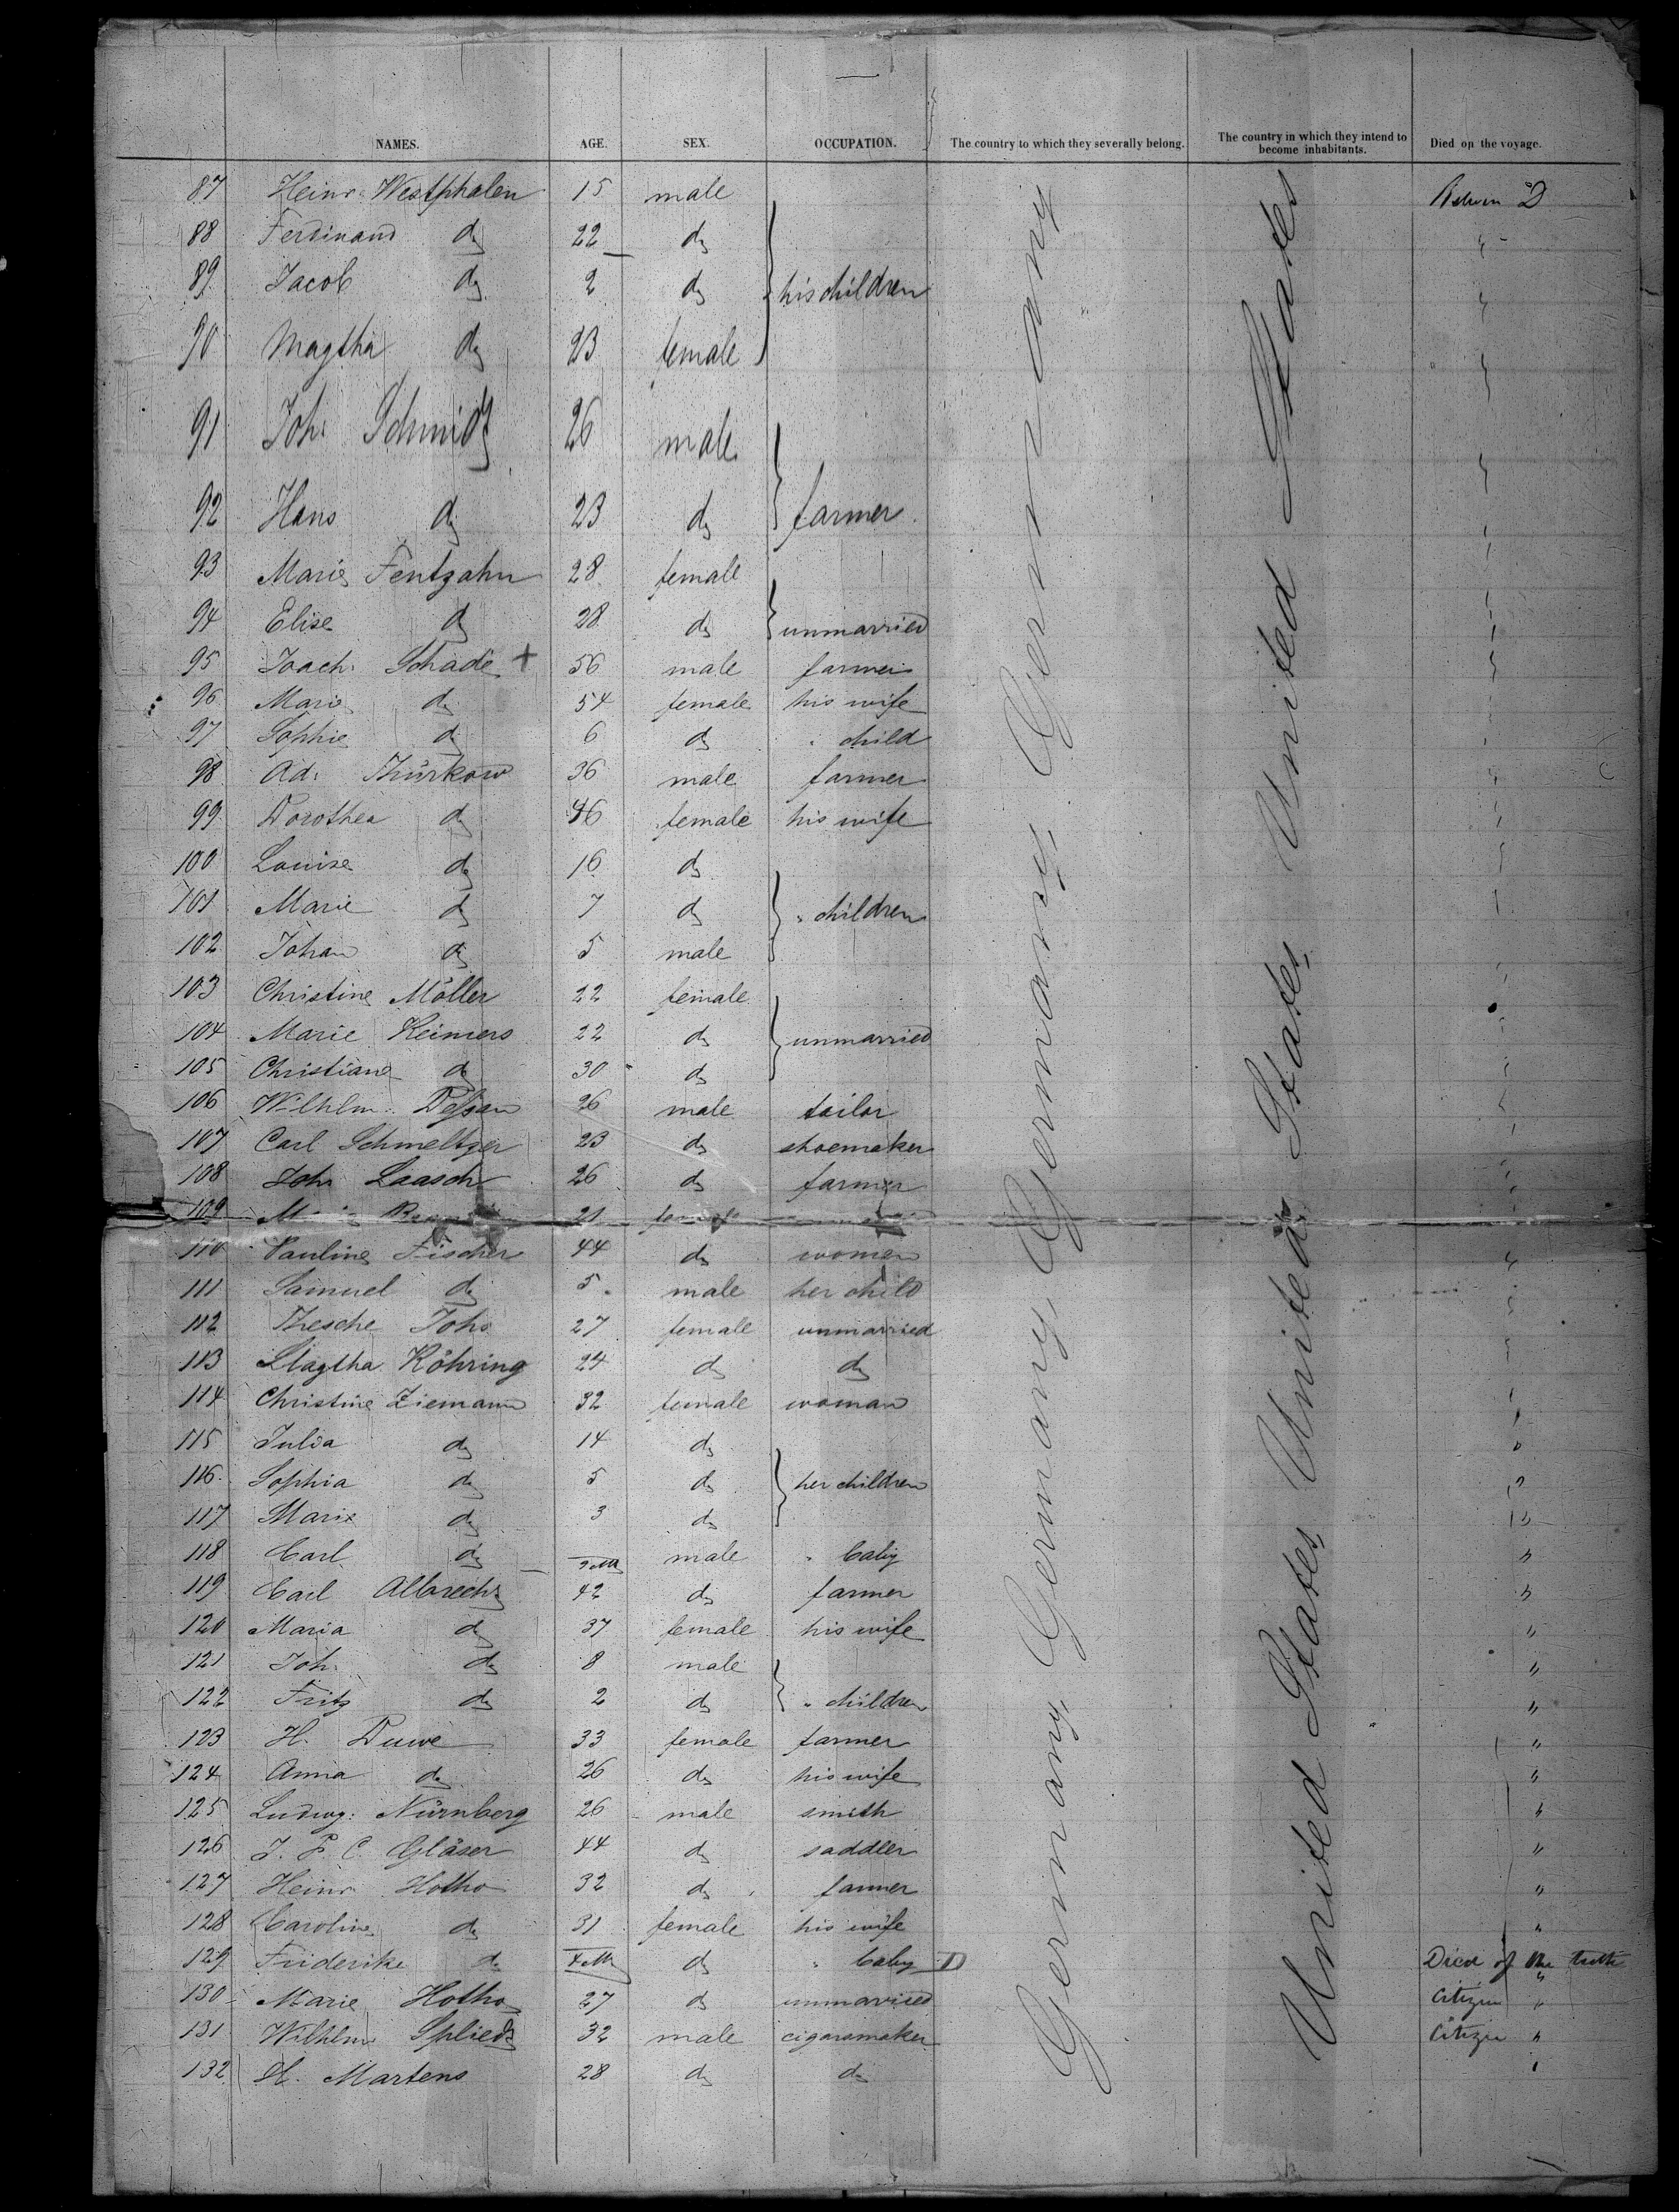 NAMES. AGE. SEX. OCCUPATION. The country to which they severally belong. The country in which they intend to become inhabitants. Died on the voyage.
87 Heinr. Westphalen 15 male
88 Ferdinand do 22 do
89 Jacob do 2 do his children
90 Magtha do 23 female
91 Joh. Schmidt 26 male
92 Hans do 23 do farmer
93 Marie Fentzahn 28 female
94 Elise do 28 do unmarried
95 Joach. Schade + 56 male farmer
96 Marie do 54 female his wife
97 Sophie do 6 do " child
98 Ad. Thürkow 36 male farmer
99 Dorothea do 46 female his wife
100 Louise do 16 do
101 Marie do 7 do " children
102 Johan do 5 male
103 Christine Möller 22 female
104 Marie Reimers 22 do unmarried
105 Christiane do 30 do
106 Wilhlm. 26 male tailor
107 Carl Schmeltzer 23 do shoemaker
108 Joh. Laasch 26 do farmer
109 21
110 Pauline Fischer 44 do women
111 Samuel do 5 male her child
112 Thesche Johs 27 female unmarried
113 Magtha Röhring 24 do do
114 Christine Ziemann 32 female woman
115 Julia do 14 do
116 Sophia do 5 do her children
117 Marie do 3 do
118 Carl do 9 M male " baby
119 Carl Albrecht 42 do farmer
120 Maria do 37 female his wife
121 Joh. do 8 male
122 Fritz do 2 do " children
123 H. Duwe 33 female farmer
124 Anna do 26 do his wife
125 Ludwg: Nürnberg 26 male smith
126 J. P. C. Gläser 44 do saddler
127 Heinr Hotho 32 do farmer
128 Caroline do 31 female his wife
129 Friderike do 4 M do " baby D Died of the teeth
130 Marie Hotho 27 do unmarried Citizen "
131 Wilhlm Spliedt 32 male cigarsmaker Citizen "
132 H. Martens 28 do do
Germany Germany Germany Germany
United States United States United States